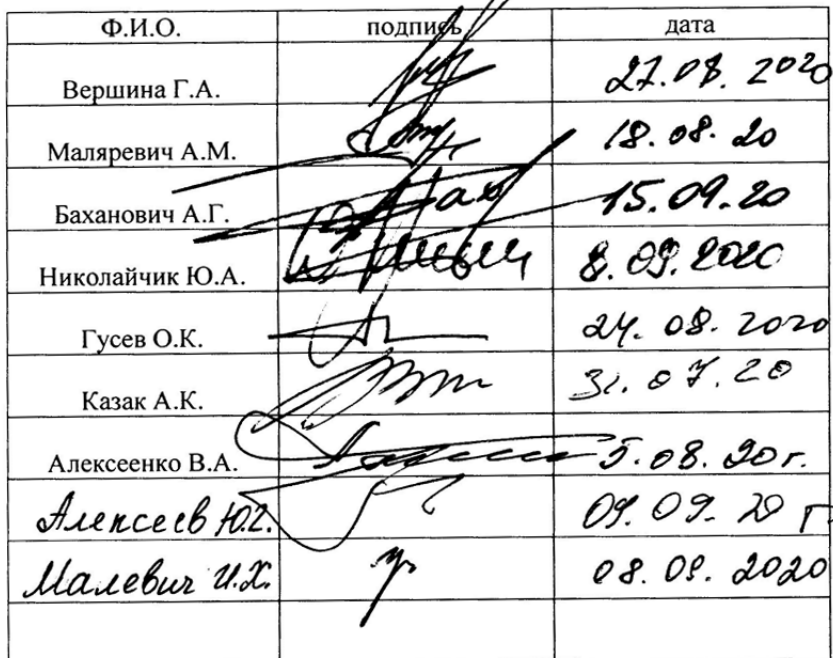 Ф.И.О. подпись дата
Вершина Г.А. 27.08.2020
Маляревич А.М. 18.08.20
Баханович А.Г. 15.09.20
Николайчик Ю.А. 8.09.2020
Гусев О.К. 24.08.2020
Казак А.К. 31.07.20
Алексеенко В.А. 5.08.20г.
Алексеев Ю.Г. 09.09.20 г
Малевич И.Х. 08.09.2020